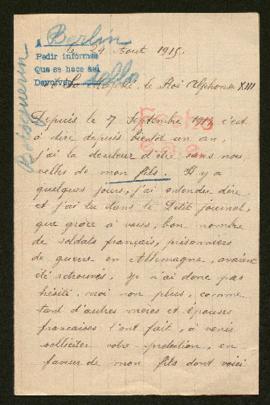 Berlin
le 4 Aout 1915.
A
Pedir informes
Que se hace así
Devolver
sello
Sa Majesté le Roi Alphonse XIII
Depuis le 7 Septembre 1914 c'est
à dire depuis bientôt un an,
j'ai la douleur d'être sans nou-
velles de mon fils. Il y a
quelques jours, j'ai entendu dire
et j'ai lu dans le Petit Journal,
que grâce à vous, bon nombre
de soldats français, prisonniers
de guerre en Allemagne, avaient
été retrouvés. Je n'ai donc pas
hésité, moi non plus, comme
tant d'autres mères et épouses
françaises l'ont fait, à venir
solliciter votre protection, en
faveur de mon fils dont voici